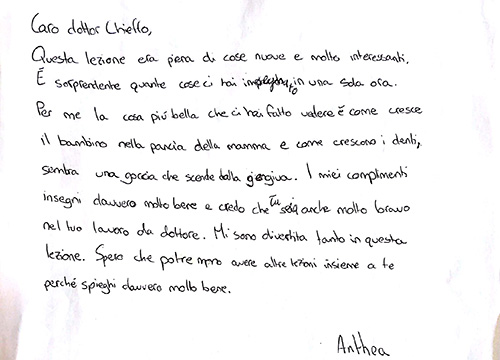 Caro dottor Chiello,
Questa lezione era piena di cose nuove e molto interessanti.
È sorprendente quante cose ci hai insegnato in una sola ora.
Per me la cosa più bella che ci hai fatto vedere è come cresce
il bambino nella pancia della mamma e come crescono i denti,
sembra una goccia che scende dalla gengiva. I miei complimenti
insegni davvero molto bene e credo che tu sia anche molto bravo
nel tuo lavoro da dottore. Mi sono divertita tanto in questa
lezione. Spero che potremmo avere altre lezioni insieme a te
perché spieghi davvero molto bene.
Anthea